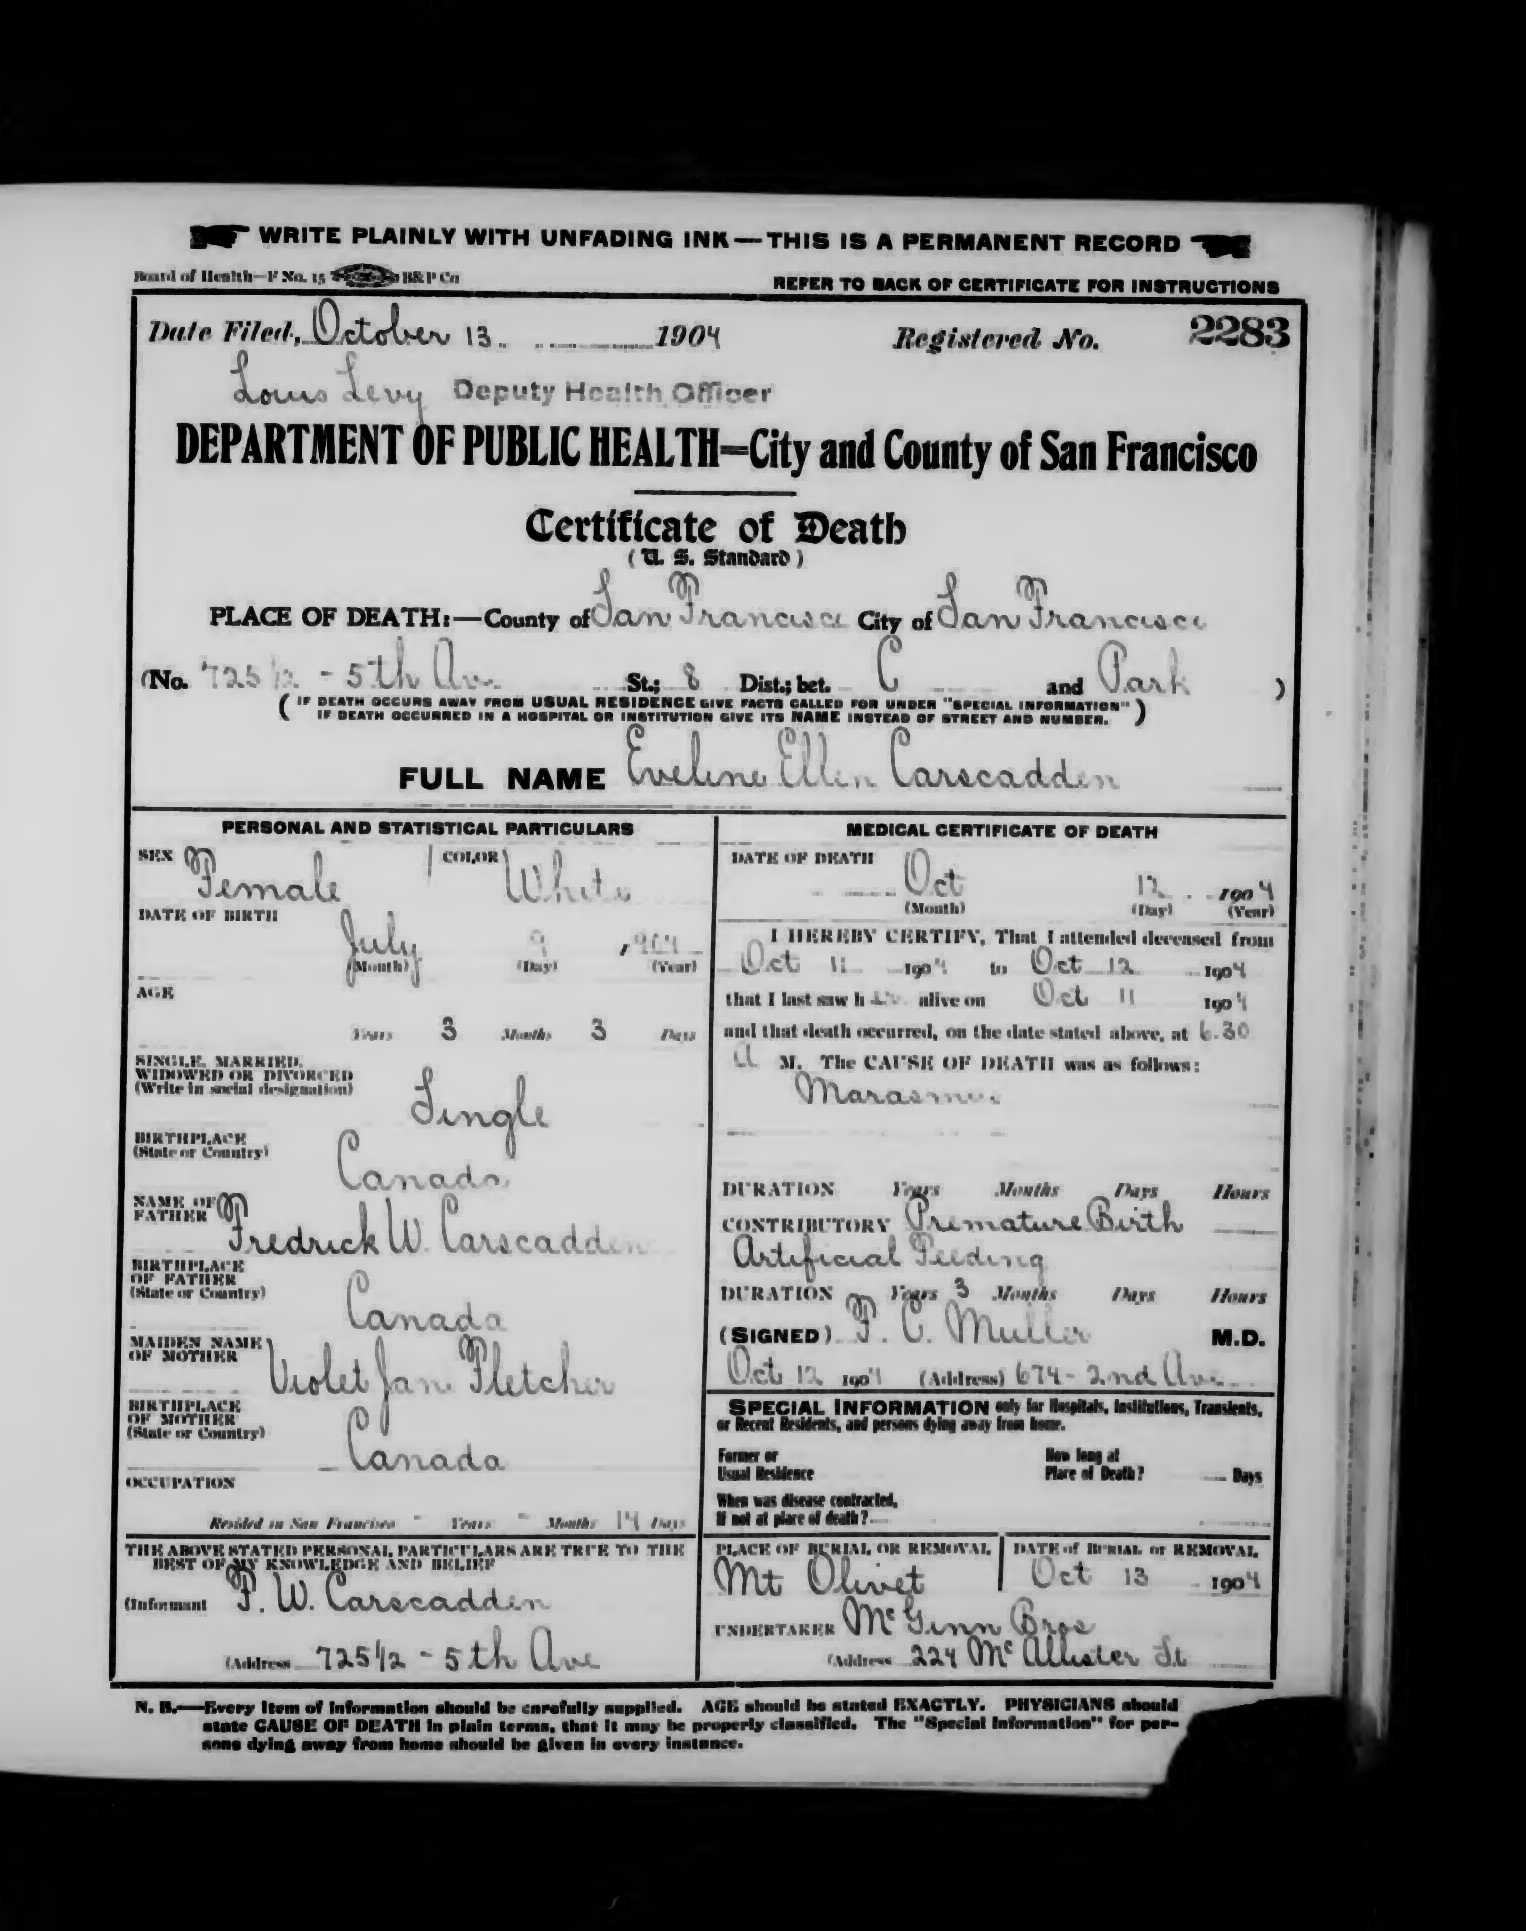 WRITE PLAINLY WITH UNFADING INK—THIS IS A PERMANENT RECORD
Board of Health—F No. 15 B&P Co REFER TO BACK OF CERTIFICATE FOR INSTRUCTIONS
Date Filed, October 13 1904 Registered No. 2283
Louis Levy Deputy Health Officer
DEPARTMENT OF PUBLIC HEALTH—City and County of San Francisco
Certificate of Death
(U. S. Standard)
PLACE OF DEATH:—County of San Francisco City of San Francisco
(No. 725 1/2 - 5th Ave St.; 8 Dist.; bet. C and Park )
( IF DEATH OCCURS AWAY FROM USUAL RESIDENCE GIVE FACTS CALLED FOR UNDER "SPECIAL INFORMATION"
IF DEATH OCCURRED IN A HOSPITAL OR INSTITUTION GIVE ITS NAME INSTEAD OF STREET AND NUMBER. )
FULL NAME Eveline Ellen Carscadden
PERSONAL AND STATISTICAL PARTICULARS
SEX Female COLOR White
DATE OF BIRTH
July 9 1904
(Month) (Day) (Year)
AGE
Years 3 Months 3 Days
SINGLE, MARRIED,
WIDOWED OR DIVORCED
(Write in social designation)
Single
BIRTHPLACE
(State or Country)
Canada
NAME OF
FATHER
Fredrick W. Carscadden
BIRTHPLACE
OF FATHER
(State or Country)
Canada
MAIDEN NAME
OF MOTHER
Violet Jane Fletcher
BIRTHPLACE
OF MOTHER
(State or Country)
Canada
OCCUPATION
Resided in San Francisco - Years - Months 14 Days
THE ABOVE STATED PERSONAL PARTICULARS ARE TRUE TO THE
BEST OF MY KNOWLEDGE AND BELIEF
(Informant F. W. Carscadden
(Address 725 1/2 - 5th Ave
MEDICAL CERTIFICATE OF DEATH
DATE OF DEATH
Oct 12 1904
(Month) (Day) (Year)
I HEREBY CERTIFY, That I attended deceased from
Oct 11 1904 to Oct 12 1904
that I last saw h er alive on Oct 11 1904
and that death occurred, on the date stated above, at 6.30
A M. The CAUSE OF DEATH was as follows:
Marasmus
DURATION Years Months Days Hours
CONTRIBUTORY Premature Birth
Artificial Feeding
DURATION Years 3 Months Days Hours
(SIGNED) F. C. Muller M.D.
Oct 12 1904 (Address) 674 - 2nd Ave
SPECIAL INFORMATION only for Hospitals, Institutions, Transients,
or Recent Residents, and persons dying away from home.
Former or
Usual Residence
How long at
Place of Death? Days
When was disease contracted,
If not at place of death?
PLACE OF BURIAL OR REMOVAL DATE of BURIAL or REMOVAL
Mt Olivet Oct 13 1904
UNDERTAKER McGinn Bros
(Address 224 McAllister St
N. B.—Every item of information should be carefully supplied. AGE should be stated EXACTLY. PHYSICIANS should
state CAUSE OF DEATH in plain terms, that it may be properly classified. The "Special Information" for per-
sons dying away from home should be given in every instance.